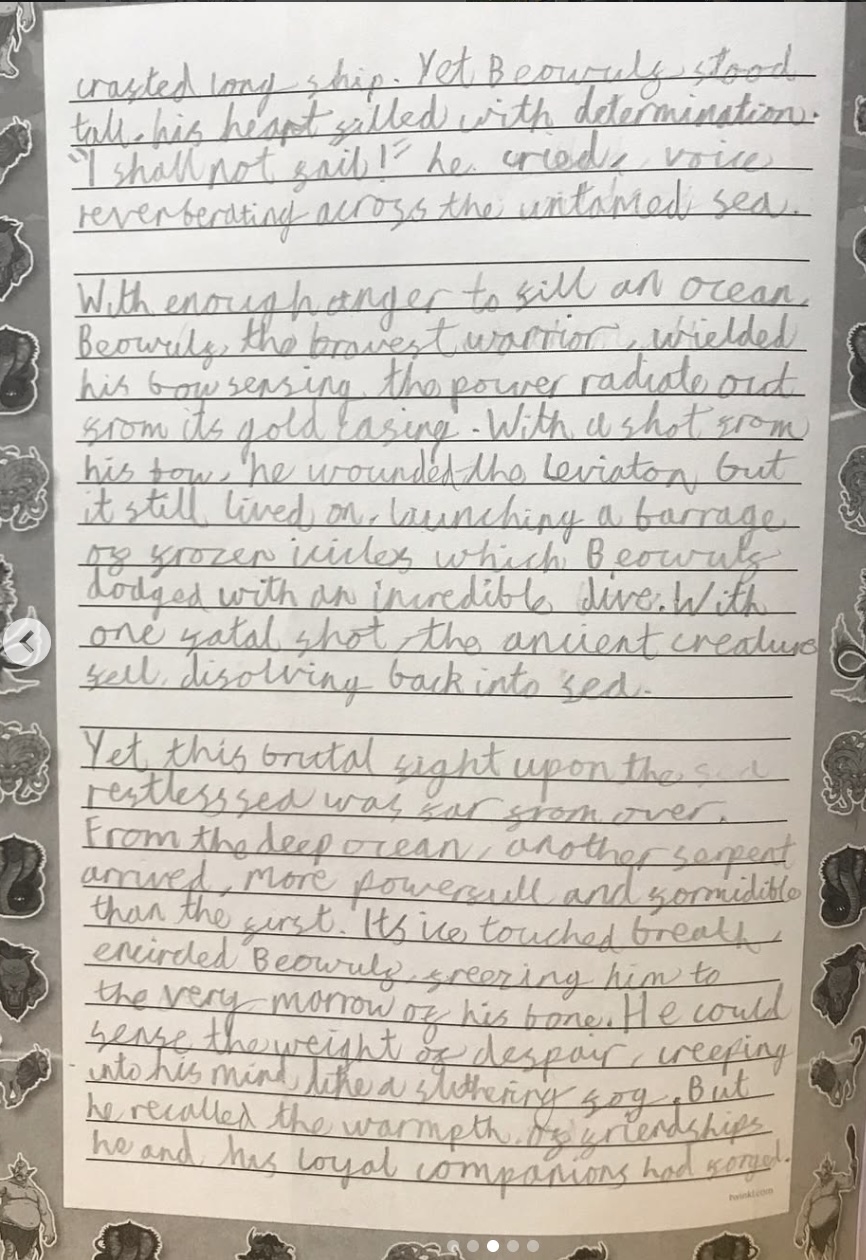 crafted long ship. Yet Beowulf stood
tall, his heart filled with determination.
"I shall not fail!" he cried, voice
reverberating across the untamed sea.
With enough anger to fill an ocean,
Beowulf, the bravest warrior, wielded
his bow sensing the power radiate out
from its gold casing. With a shot from
his bow, he wounded the Leviaton but
it still lived on, launching a barrage
of frozen icicles which Beowulf
dodged with an incredible dive. With
one fatal shot, the ancient creature
fell, disolving back into sea.
Yet, this brutal fight upon the sea
restless sea was far from over.
From the deep ocean, another serpent
arrived, more powerfull and formidible
than the first. Its ice touched breath,
encircled Beowulf, freezing him to
the very morrow of his bone. He could
sense the weight of despair, creeping
into his mind like a slithering fog. But
he recalled the warmpth of friendships
he and his loyal companions had forged.
twinkl.com